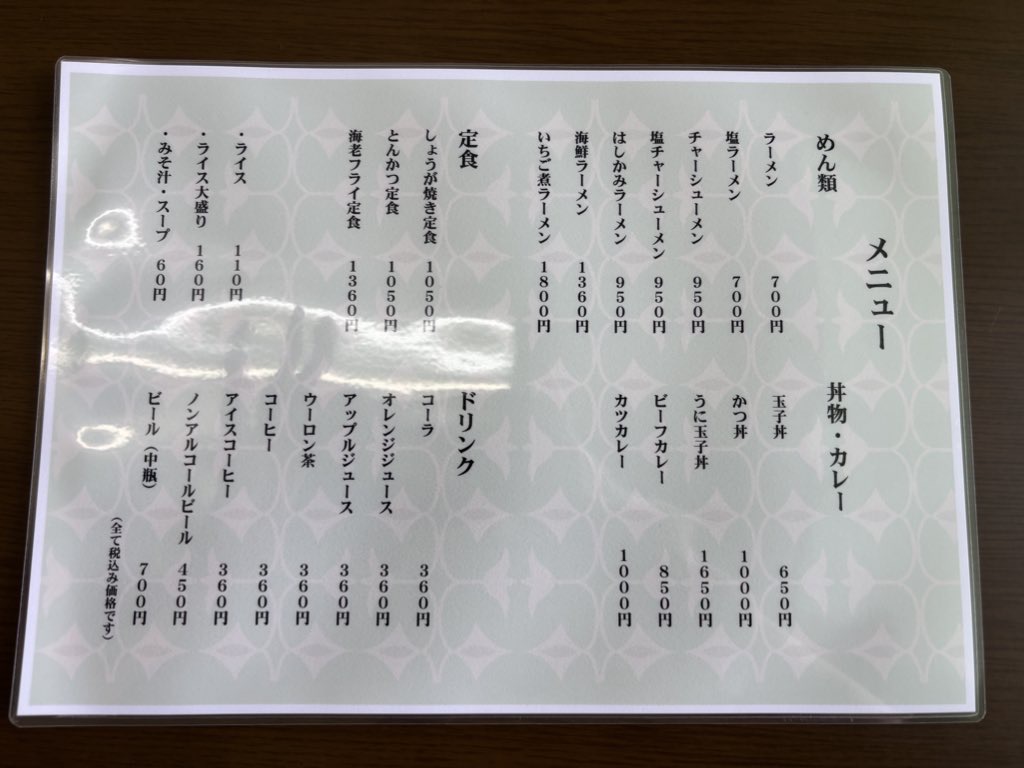 メニュー
めん類
ラーメン 700円
塩ラーメン 700円
チャーシューメン 950円
塩チャーシューメン 950円
はしかみラーメン 950円
海鮮ラーメン 1360円
いちご煮ラーメン 1800円
丼物・カレー
玉子丼 650円
かつ丼 1000円
うに玉子丼 1650円
ビーフカレー 850円
カツカレー 1000円
定食
しょうが焼き定食 1050円
とんかつ定食 1050円
海老フライ定食 1360円
・ライス 110円
・ライス大盛り 160円
・みそ汁・スープ 60円
ドリンク
コーラ 360円
オレンジジュース 360円
アップルジュース 360円
ウーロン茶 360円
コーヒー 360円
アイスコーヒー 360円
ノンアルコールビール 450円
ビール（中瓶） 700円
（全て税込み価格です）